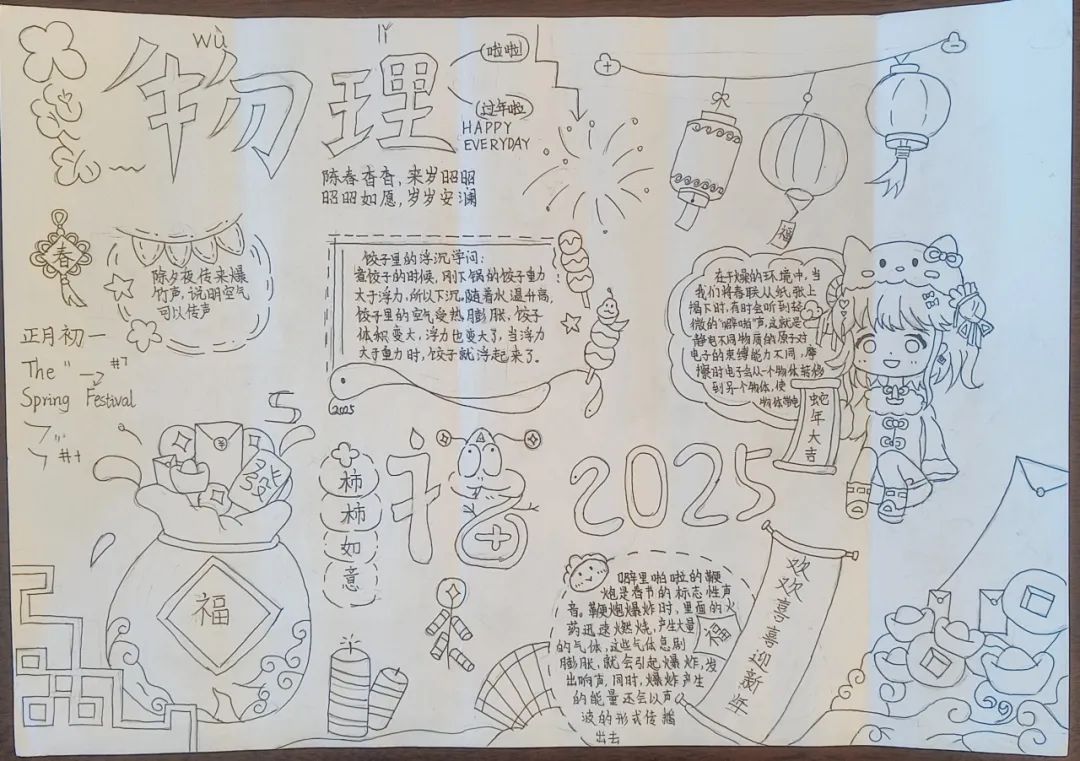 wù
物理
啦啦
过年啦
HAPPY
EVERYDAY
陈春香香，来岁昭昭
昭昭如愿，岁岁安澜
春
除夕夜传来爆
竹声，说明空气
可以传声
正月初一
The
Spring Festival
饺子里的浮沉学问：
煮饺子的时候，刚下锅的饺子重力
大于浮力，所以下沉，随着水温升高，
饺子里的空气受热膨胀，饺子
体积变大，浮力也变大了，当浮力
大于重力时，饺子就浮起来了。
2025
福
在干燥的环境中，当
我们将春联从纸张上
揭下时，有时会听到轻
微的“噼啪”声，这就是
静电不同物质的原子对
电子的束缚能力不同，摩
擦时电子会从一个物体转移
到另一个物体，使
物体带电
蛇年大吉
发
福
柿柿如意
福
2025
噼里啪啦的鞭
炮是春节的标志性声
音。鞭炮爆炸时，里面的火
药迅速燃烧，产生大量
的气体，这些气体急剧
膨胀，就会引起爆炸，发
出响声，同时，爆炸产生
的能量还会以声
波的形式传播
出去
福
欢欢喜喜迎新年